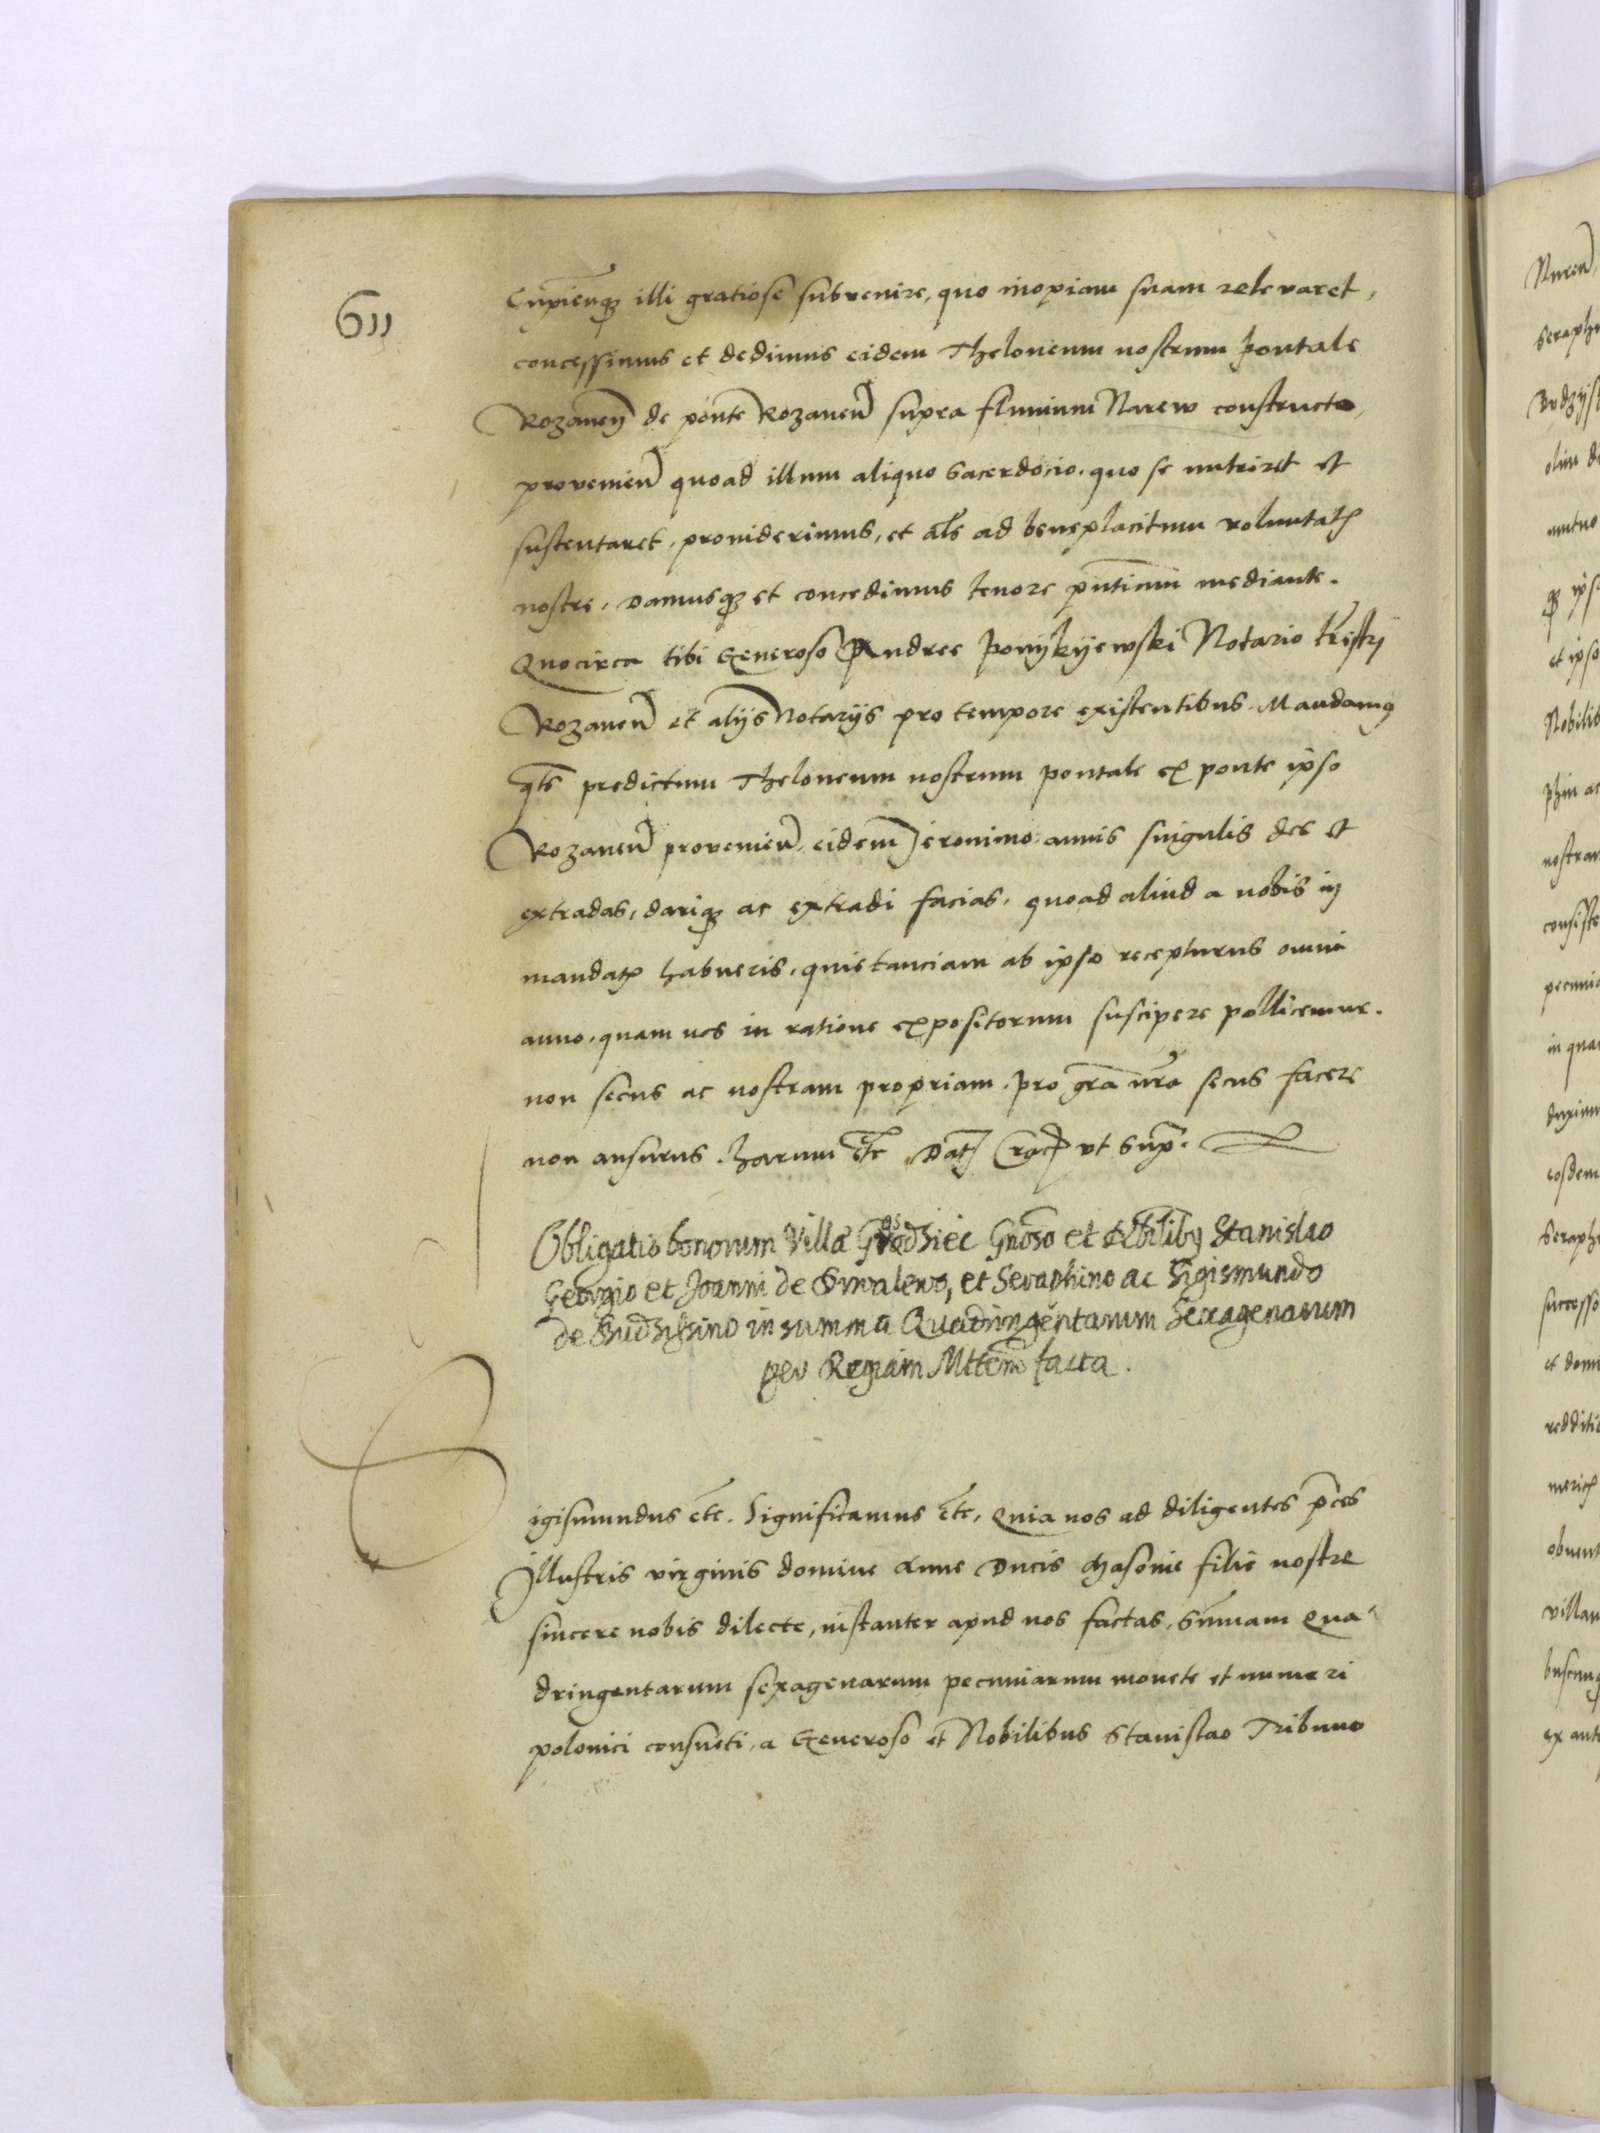 611
Cupientesque illi gratiose subvenire, quo inopiam suam relevaret,
concessimus et dedimus eidem Theloneum nostrum pontale
Rozanen de ponte Rozanen supra fluvium Narew constructo,
provenien quoad illum aliquo Sacerdocio, quo se nutriret et
sustentaret, providerimus, et als ad beneplacitum voluntatis
nostre, Damusque et concedimus tenore pntium mediante.
Quocirca tibi Generoso Andree Ponykyewski Notario trrestri
Rozanen et alijs Notarijs pro tempore existentibus Mandamus
qts predictum Theloneum nostrum pontale ex ponte ipso
Rozanen provenien, eidem Jeronimo annis singulis des et
extradas, darique ac extradi facias, quoad aliud a nobis in
mandatis habueris, quietanciam ab ipso recepturus omni
anno, quam nos in ratione expositorum suscipere pollicemur.
non secus ac nostram propriam, pro gra nra secus facere
non ausurus. harum etc Dat Crac ut Sup.
Obligatio bonorum Villæ Gnoso et Nbilibus Stanislao
Georgio et Joanni de et Seraphino ac Sigismundo
de in summa Quadringentarum Sexagenarum
per Regiam Mttem facta.
igismundus etc. Significamus etc, Quia nos ad diligentes pces
Illustris virginis domine Anne Ducis Masovie filie nostre
sincere nobis dilecte, instanter apud nos factas, Summam Qua
dringentarum sexagenarum pecuniarum monete et numeri
polonici consueti, a Generoso et Nobilibus Stanislao Tribuno